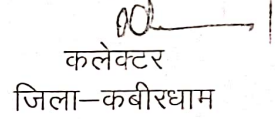 कलेक्टर
जिला–कबीरधाम